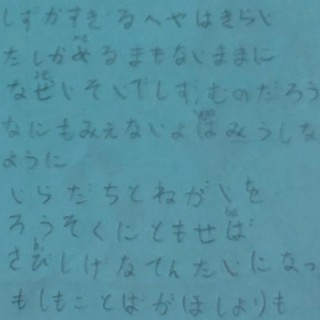 しずかすぎるへやはきらい
たしかめるまもないままに
なぜいそいでしず,むのだろう
なにもみえないよ はみうしな
ように
いらだちとねがいを
ろうそくにともせば
さびしげなてんたいになっ
もしもことばがほしよりも